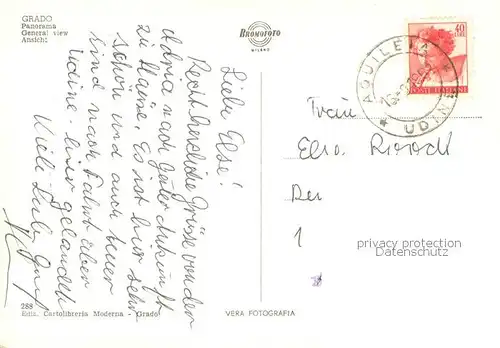 GRADO
Panorama
General view
Ansicht
BROMOFOTO
MILANO
Liebe Else!
Recht herzliche Grüße von der
Adria nach guter Ankunft
zu Hause. Es ist hier sehr
schön und auch teuer
sind nach Fahrt über
Udine hier gelandet
Viele liebe
288
Ediz. Cartolibreria Moderna - Grado
VERA FOTOGRAFIA
AQUILEIA
* UDINE *
40
POSTE ITALIANE
Frau
Elsa
1
privacy protection
Datenschutz